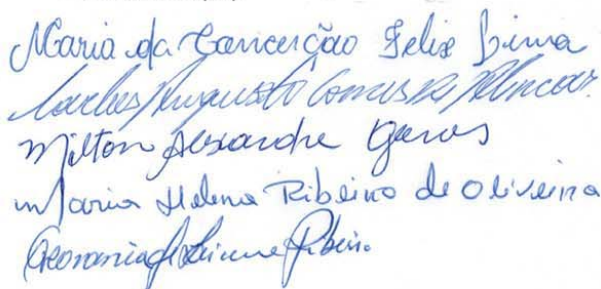 Maria da Conceição Felix Lima
Carlos Augusto Gomes de Alencar
Milton Alexandre
Maria Helena Ribeiro de Oliveira
Ribeiro